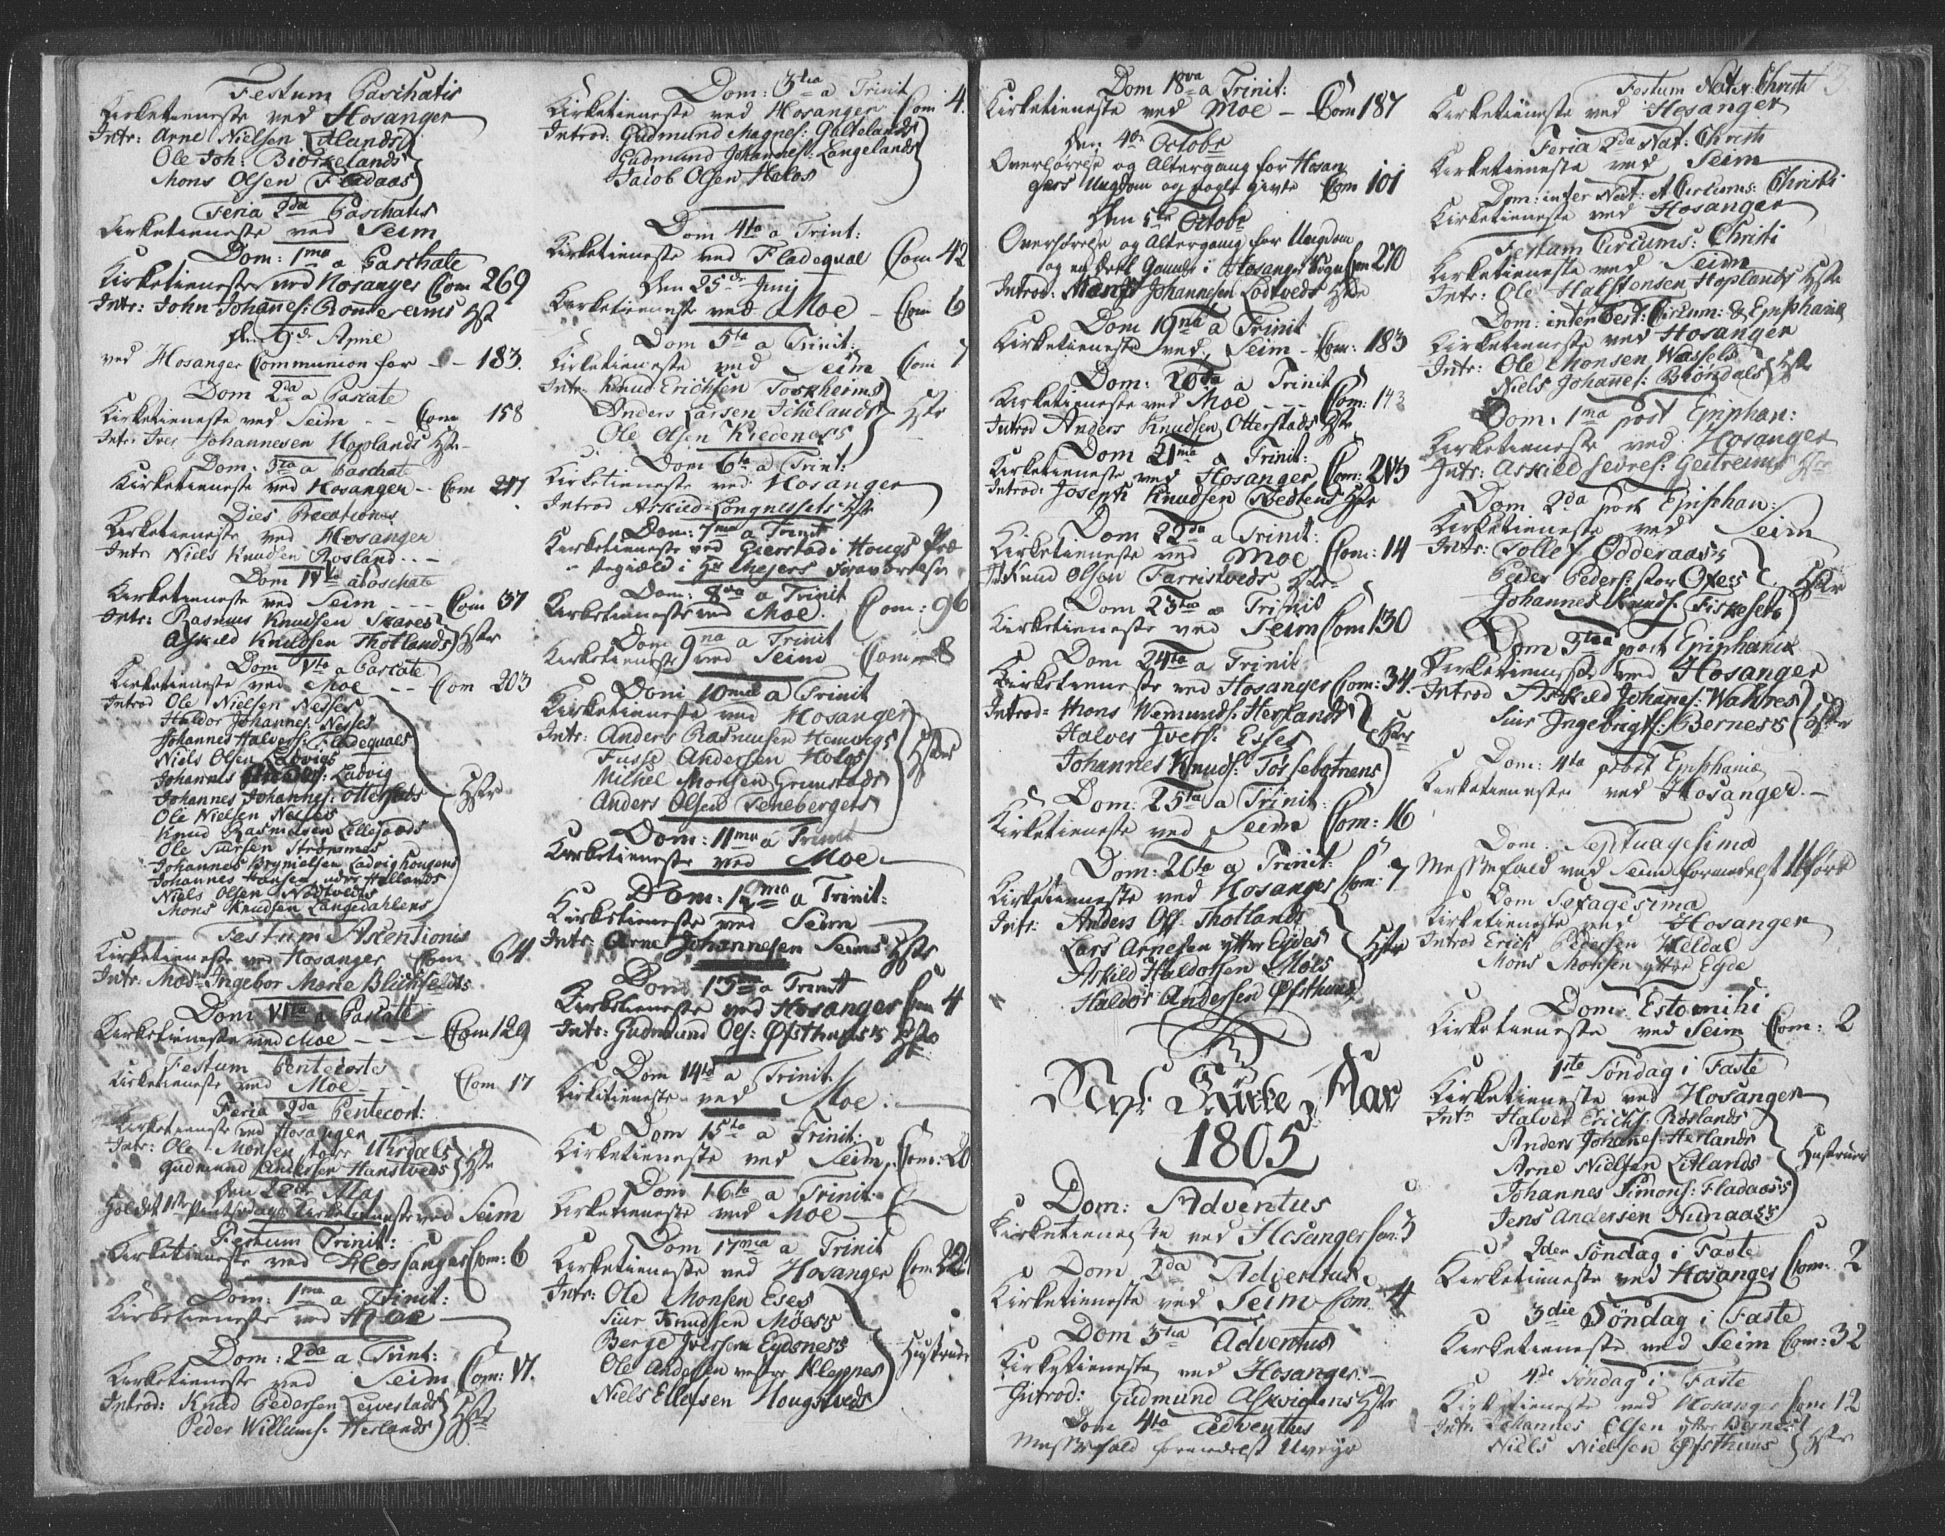 Festum Paschatis
Kirketieneste ved Hosanger
Intr: Arne Nielsen
Ole Joh: Biørkelands
Mons Olsen Fladaas
Feria 2da Paschatis
Kirketieneste ved Seim
Dom: 1ma a Paschate
Kirketieneste ved Hosanger Com 269
Intr: John Johannes: Hstr
Den 9de April
ved Hosanger Communion for - - 183.
Dom 2da a Pascate
Kirketieneste ved Seim - - Com 158
Intr: Iver Johannesen Hoplands Hstr
Dom: 3tia a Paschat
Kirketieneste ved Hosanger - - Com 217
Dies Precationes
Kirketieneste ved Hosanger
Intr Niels Knudsen Rosland
Dom IVta a Paschate
Kirketieneste ved Seim - - - Com 37
Intr: Rasmus Knudsen Skares
Askild Knudsen Thotlands Hstr
Dom Vta a Pascate
Kirketieneste ved Moe - - - Com 203
Introd Ole Nielsen Nesses
Haldor Johannes: Nesses
Johannes Halvers: Fladequals
Niels Olsen Ladvigs
Johannes Ladvig
Johannes Johannes: Otterstads Hstr
Ole Nielsen Nesses
Knud Rasmusen
Ole Siursen Strømmes
Johannes Brynielsen Ladvighougens
Johannes Hansen Hallands
Niels Olsen Nødtvedts
Mons Knudsen Langedahlens
Festum Ascentionis
Kirketieneste ved Hosanger Com 64.
Intr: Mad: Ingebor Marie
Dom VIta a Pascate
Kirketieneste ved Moe - - - Com 129
Festum Pentecoste
Kirketieneste ved Moe - - Com 17
Feria 2da Pentecost:
Kirketieneste ved Hosanger
Intr: Ole Monsen
Gudmund Andersen Hanstveds Hstr
Den 28de Maj
Holdet 1ste Pintsedags Kirketieneste ved Seim
Festum Trinit:
Kirketieneste ved Hosanger Com: 6
Dom: 1ma a Trinit:
Kirketieneste ved Moe
Dom: 2da a Trint:
Kirketieneste ved Seim Com: 17.
Introd: Knud Pedersen
Peder Willums: Herlands Hstr
Dom: 3tia a Trinit
Kirketieneste ved Hosanger Com 4.
Introd: Gudmund Magnes:
Gudmund Johannes: Langelands
Jacob Olsen
Dom 4ta a Trint:
Kirketieneste ved Fladequal Com 42
Den 25de Junij
Kirketieneste ved Moe - Com 6
Dom 5ta a Trinit:
Kirketieneste ved Seim Com 7
Intr: Knud Erichsen
Anders Larsen Hstr
Ole Olsen
Dom 6ta a Trint:
Kirketieneste ved Hosanger
Introd Askild Hstr
Dom: 7ma a Trinit
Kirketieneste ved Gierstad i Hougs Præ-
stegiæld i Hr Forævrelse
Dom: 8va a Trinit
Kirketieneste ved Moe. Com: 96
Dom 9na a Trinit
Kirketieneste ved Seim Com - 8
Dom 10ma a Trinit
Kirketieneste ved Hosanger
Intr: Anders Rasmusen
Fusse Andersen
Michel Monsen Grimstads
Anders Olsen Tenebergets
Dom: 11ma a Trinit
Kirketieneste ved Moe
Dom: 12ma a Trinit:
Kirketieneste ved Seim
Intr: Arne Johannesen Seims Hstr
Dom 13 a Trinit
Kirketieneste ved Hosanger Com 4
Intr: Gudmund Ols: Øfsthuses Hstr
Dom 14ta a Trinit
Kirketieneste ved Moe.
Dom 15ta a Trinit.
Kirketieneste ved Seim, Com: 20
Dom 16ta a Trinit.
Kirketieneste ved Moe
Dom 17ma a Trinit
Kirketieneste ved Hosanger Com
Intr: Ole Monsen Eses
Siur Knudsen Møess
Berge Iversen Eydsness Hustruer
Ole Andersen vestre Kleppnes
Niels Ellefsen Hougstveds
Dom 18va a Trinit:
Kirketieneste ved Moe - Com 187
Den 4de Octobr
Overhørelse og Altergang for Hosan
gers Ungdom og nogle Givte Com 101
Den 5te Octobr
Overhørelse og Altergang for Ungdom
og en Deel Gamle i Hosanger Sogn Com 270
Introd: Mons Johannesen Lodtveds Hstr
Dom 19na a Trinit
Kirketieneste ved Seim - Com: 183
Dom: 20ta a Trinit
Kirketieneste ved Moe - - - Com: 143
Introd Anders Knudsen Otterstads Hstr
Dom 21ma a Trinit:
Kirketieneste ved Hosanger Com: 213
Introd: Joseph Knudsen Hstr
Dom 22da a Trinit:
Kirketieneste ved Moe Com: 14
Knud Olsen Farristveds Hstr
Dom 23tia a Trinit
Kirketieneste ved Seim Com 130
Dom 24ta a Trinit
Kirketieneste ved Hosanger Com: 34.
Introd: Mons Wemunds: Herlands
Halver Ivers: Eses Hstr
Johannes Knuds:
Dom: 25ta a Trinit:
Kirketieneste ved Seim Com: 16
Dom: 26ta a Trinit:
Kirketieneste ved Hosanger Com: 7
Intr: Anders Ols: Thotlands
Lars Arnesen yttre Eydes Hstr
Askild Haldorsen
Haldor Andersen Øfsthuus
Nyt Kirke Aar
1805
Dom: Adventus
Kirketieneste ved Hosanger Com: 3
Dom 2da Adventus
Kirketieneste ved Seim Com. 4
Dom 3tia Adventus
Kirketieneste ved Hosanger. -
Introd: Gudmund Hstr
Dom 4ta Adventus
Messefald formedelst Uveyr
Festum Nativ: Christi
Kirketieneste ved Hosanger
Feria 2da Nat: Christi
Kirketieneste ved Seim
Dom: inter Nat: et Circums: Christi
Kirketieneste ved Hosanger
Festum Circums: Christi
Kirketieneste ved Seim
Intr: Ole Halstensen Hoplands Hstr
Dom: inter Fest: Circum: & Epiphaniæ
Kirketieneste ved Hosanger
Intr: Ole Monsen
Niels Johannes: Hstr
Dom. 1ma post Epiphan:
Kirketieneste ved Hosanger
Intr: Askild Hstr
Dom 2da post Epiphan:
Kirketieneste ved Seim
Intr: Tollef Odderaass
Peder Peders: Hstr
Johannes Knuds: Fiskesets
Dom 3tia post Epiphaniæ
Kirketieneste ved Hosanger
Introd Askild Johanes:
Siur Ingebrigts: Berness Hstr
Dom: 4ta post Epiphaniæ
Kirketieneste ved Hosanger. -
Dom: Septuagesima
Messefald ved Seim formedelst Uføre
Dom Sexagesima
Kirketieneste ved Hosanger
Introd Erick Pedersen
Mons Monsen yttre Eyde
Dom: Estomihi
Kirketieneste ved Seim Com: 2
1ste Søndag i Faste
Kirketieneste ved Hosanger
Intr Halver Erichs: Røslands
Anders Johanes: Herlands
Arne Nielsen Litlands Hustruer
Johannes Simons: Fladaass
Jens Andersen
2den Søndag i Faste
Kirketieneste ved Hosanger Com: 2
3die Søndag i Faste
Kirketieneste ved Seim Com: 32
4de Søndag i Faste
Kirketieneste ved Hosanger Com 12
Intr: Johannes Olsen yttre Bernes
Niels Nielsen Øfsthuus Hstr